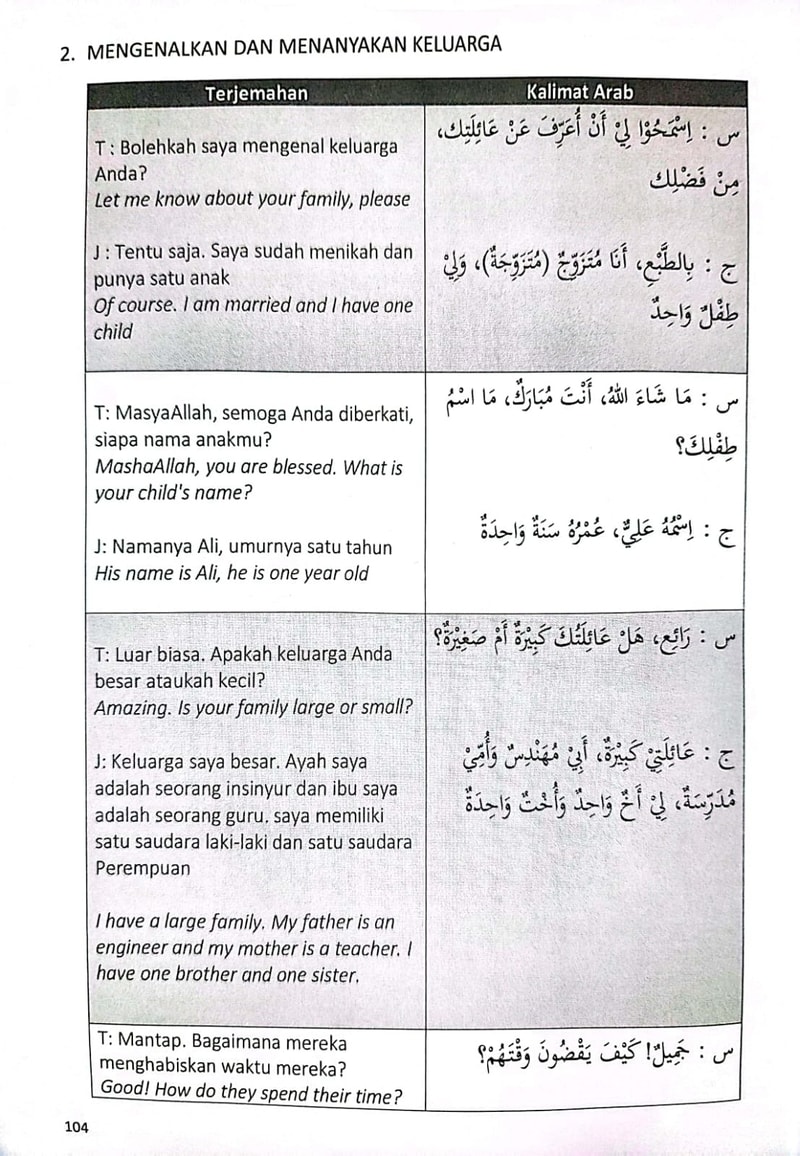 2. MENGENALKAN DAN MENANYAKAN KELUARGA
Terjemahan
Kalimat Arab
T : Bolehkah saya mengenal keluarga
Anda?
Let me know about your family, please
J : Tentu saja. Saya sudah menikah dan
punya satu anak
Of course. I am married and I have one
child
س : اِسْمَحُوْا لِيْ أَنْ أُعَرِّفَ عَنْ عَائِلَتِك،
مِنْ فَضْلِك
ج : بِالطَّبْعِ، أَنَا مُتَزَوِّجٌ (مُتَزَوِّجَةٌ)، وَلِيْ
طِفْلٌ وَاحِدٌ
T: MasyaAllah, semoga Anda diberkati,
siapa nama anakmu?
MashaAllah, you are blessed. What is
your child's name?
J: Namanya Ali, umurnya satu tahun
His name is Ali, he is one year old
س : مَا شَاءَ اللهُ، أَنْتَ مُبَارَكٌ، مَا اسْمُ
طِفْلِكَ؟
ج : اِسْمُهُ عَلِيٌّ، عُمْرُهُ سَنَةٌ وَاحِدَةٌ
T: Luar biasa. Apakah keluarga Anda
besar ataukah kecil?
Amazing. Is your family large or small?
J: Keluarga saya besar. Ayah saya
adalah seorang insinyur dan ibu saya
adalah seorang guru. saya memiliki
satu saudara laki-laki dan satu saudara
Perempuan
I have a large family. My father is an
engineer and my mother is a teacher. I
have one brother and one sister.
س : رَائِع، هَلْ عَائِلَتُكَ كَبِيْرَةٌ أَمْ صَغِيْرَةٌ؟
ج : عَائِلَتِيْ كَبِيْرَةٌ، أَبِيْ مُهَنْدِسٌ وَأُمِّيْ
مُدَرِّسَةٌ، لِيْ أَخٌ وَاحِدٌ وَأُخْتٌ وَاحِدَةٌ
T: Mantap. Bagaimana mereka
menghabiskan waktu mereka?
Good! How do they spend their time?
س : جَمِيلٌ! كَيْفَ يَقْضُونَ وَقْتَهُمْ؟
104